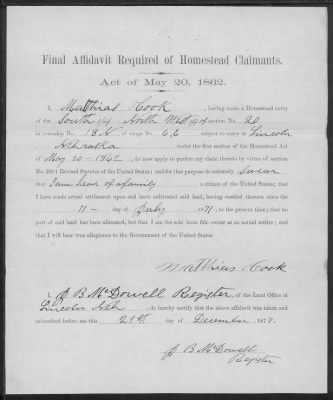 Final Affidavit Required of Homestead Claimants.
Act of May 20, 1862.
I, Matthias Cook, having made a Homestead entry
of the South 1/4 North West 1/4 of section No. 20
in township No. 13 N of range No. 6 E, subject to entry at Lincoln
Nebraska under the first section of the Homestead Act
of May 20 - 1862, do now apply to perfect my claim thereto by virtue of section
No. 2291 Revised Statutes of the United States; and for that purpose do solemnly Swear
that I am head of a family a citizen of the United States; that I
have made actual settlement upon and have cultivated said land, having resided thereon since the
11 - day of July, 1871, to the present time; that no
part of said land has been alienated, but that I am the sole bona fide owner as an actual settler; and
that I will bear true allegiance to the Government of the United States.
Matthias Cook
I, J B McDowell Register, of the Land Office at
Lincoln Neb, do hereby certify that the above affidavit was taken and
subscribed before me this 21st day of December, 1877.
J B McDowell
Register